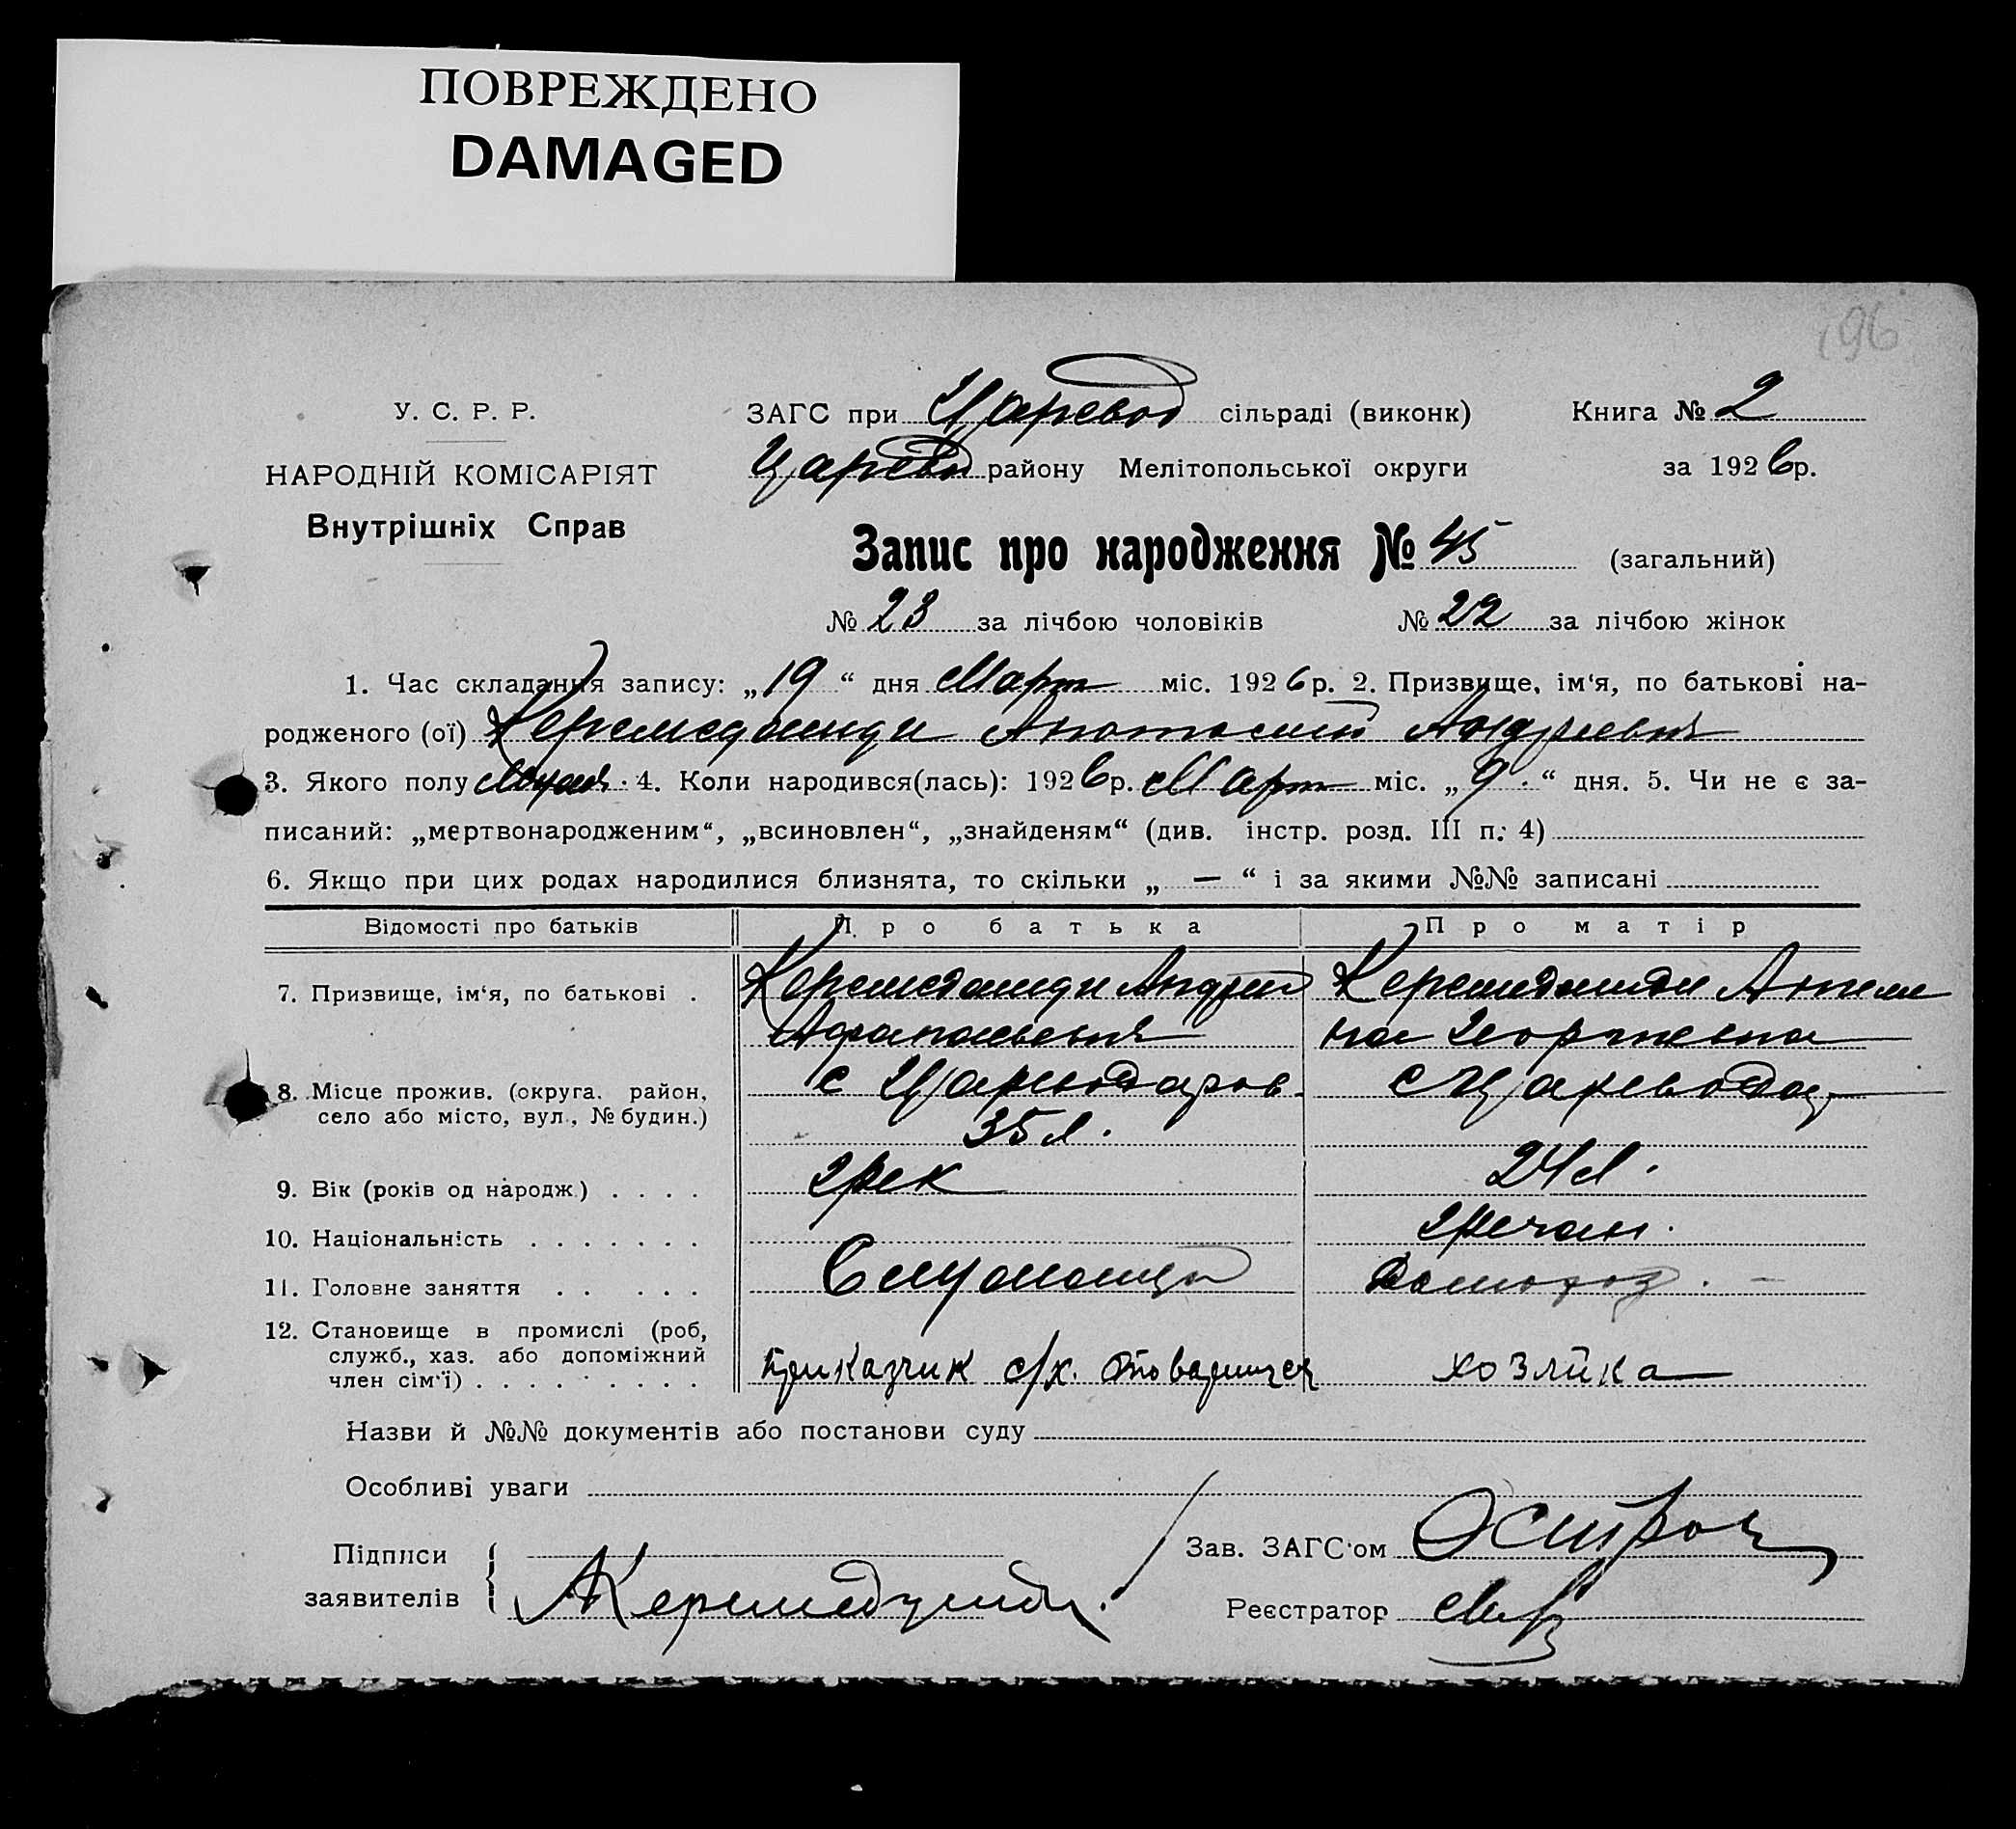 ПОВРЕЖДЕНО
DAMAGED
196
У. С. Р. Р.
НАРОДНІЙ КОМІСАРІЯТ
Внутрішніх Справ
ЗАГС при Царевод сільраді (виконк) Книга № 2
Царево району Мелітопольської округи за 1926р.
Запис про народження № 45 (загальний)
№ 23 за лічбою чоловіків № 22 за лічбою жінок
1. Час складання запису: „19“ дня Март міс. 1926р. 2. Призвище, ім‘я, по батькові на-
родженого (ої) Андреевич
3. Якого полу 4. Коли народився(лась): 1926р. Март міс. „9“ дня. 5. Чи не є за-
писаний: „мертвонародженим“, „всиновлен“, „знайденям“ (див. інстр. розд. III п. 4)
6. Якщо при цих родах народилися близнята, то скільки „ — “ і за якими №№ записані
Відомості про батьків Про батька Про матір
7. Призвище, ім‘я, по батькові . Андрей
на Георгиевна
8. Місце прожив. (округа, район, с Цареводаров. с Царевода
село або місто, вул., № будин.) 35 л.
9. Вік (років од народж.) . . . . грек 24 л.
10. Національність . . . . . . . гречан.
11. Головне заняття . . . . . Домохоз. —
12. Становище в промислі (роб,
служб., хаз. або допоміжний
член сім‘ї) . . . . . . . . . приказчик с/х. хозяйка
Назви й №№ документів або постанови суду
Особливі уваги
Підписи
заявителів
Зав. ЗАГС‘ом
Реєстратор